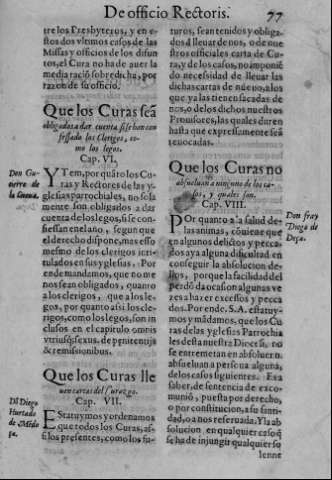 De officio Rectoris.
77
tre los Presbyteros, y en estos
dos vltimos casos de las
Missas y officios de los difun
tos, el Cura no ha de auer la
media ració sobredicha, por
razon de su officio.
Que los Curas seã
obligados a dar cuenta si se han con
fessado los Clerigos, co-
mo los legos.
Cap. VI.
Don Gu-
tierre de
la Cueua.
YTem, por quáto los Cu
ras y Rectores de las y-
glesias parrochiales, no sola
mente son obligados a dar
cuenta de los legos, si se con
fiessan en el año, segun que
el derecho dispone, mas esso
mesmo de los clerigos inti-
tulados en sus yglesias. Por
ende mandamos, que no me
nos sean obligados, quanto
a los clerigos, que a los le-
gos, por quanto assi los cle-
rigos, como los legos, son in
clusos en el capitulo omnis
vtriusq; sexus, de pęnitentijs
& remissionibus.
Que los Curas lle
uen cartas del su
Cap. VII.
Dō Diego
Hurtado
de Mēdo
ça.
EStatuymos y ordenamos
que todos los Curas, as-
si los presentes, como los fu-
turos, sean tenidos y obliga-
dos a lleuar de nos, o de nue
stros officiales carta de Cu-
ra, y de los casos, no imponié
do necessidad de lleuar las
dichas cartas de nueuo, a los
que ya las tienen sacadas de
nos, o de los dichos nuestros
Prouisores, las quales duren
hasta que expressamente seã
reuocadas.
Que los Curas no
absueluan a ninguno de los ca-
sos, y quales son.
Cap. VIII.
Don fray
Diego de
Deça.
POr quanto a la salud de
las animas, cōuiene que
en algunos delictos y pecca-
dos aya alguna dificultad en
conseguir la absolucion de-
llos, porque la facilidad del
perdō da ocasion algunas ve
zes a hazer excessos y pecca
dos. Por ende, S.A. estatuy-
mos y mãdamos, que los Cu
ras de las yglesias Parrochia
les desta nuestra Diocesi, no
se entremetan en absoluer, o
absueluan a persona alguna,
de los casos siguientes. Es a
saber, de sentencia de exco-
munió, puesta por derecho,
o por constitucion, a su santi-
dad, o a nos reseruada. Y la ab
solucion en qualquier caso q̃
se ha de injungir qualquier so
lenne